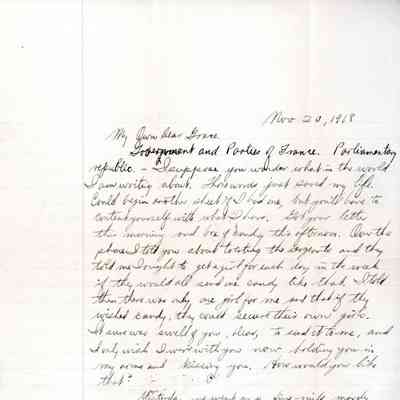 Nov 20, 1918
My Own Dear Grace
Government and Parties of France. Parliamentary
republic. - I suppose you wonder what in the world
I am writing about. Those words just saved my life.
Could begin another sheet if I had one, but you'll have to
content yourself with what I have. Got your letter
this morning and box of candy this afternoon. Over the
phone I told you about treating the sergeants and they
told me I ought to get a girl for each day in the week
if they would all send me candy like that. I told
them there was only one girl for me and that if they
wished candy, they could secure their own girls.
It sure was swell of you, dear, to send it to me, and
I only wish I were with you now holding you in
my arms and kissing you. How would you like
that?
Yesterday we went on a five-mile march